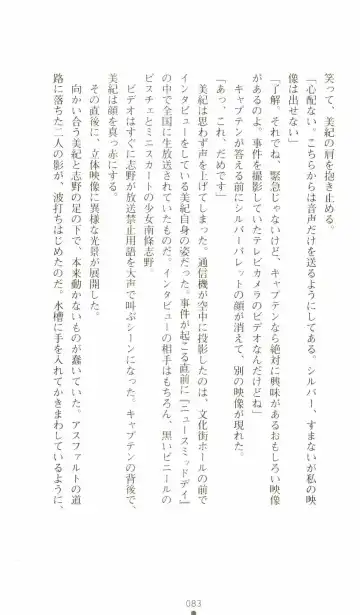 笑って、美紀の肩を抱き止める。
「心配ない。こちらからは音声だけを送るようにしてある。シルバー、すまないが私の映
像は出せない」
「了解。それでね、緊急じゃないけど、キャプテンなら絶対に興味があるおもしろい映像
があるのよ。事件を撮影していたテレビカメラのビデオなんだけどね」
キャプテンが答える前にシルバーバレットの顔が消えて、別の映像が現れた。
「あっ、これ、だめです」
美紀は思わず声を上げてしまった。通信機が空中に投影したのは、文化街ホールの前で
インタビューをしている美紀自身の姿だった。事件が起こる直前に『ニュースミッドデイ』
の中で全国に生放送されていたものだ。インタビューの相手はもちろん、黒いビニールの
ビスチェとミニスカートの少女南條志野
ビデオはすぐに志野が放送禁止用語を大声で叫ぶシーンになった。キャプテンの背後で、
美紀は顔を真っ赤にする。
その直後に、立体映像に異様な光景が展開した。
向かい合う美紀と志野の足の下で、本来動かないものが蠢いていた。アスファルトの道
路に落ちた二人の影が、波打ちはじめたのだ。水槽に手を入れてかきまわしているように、
083